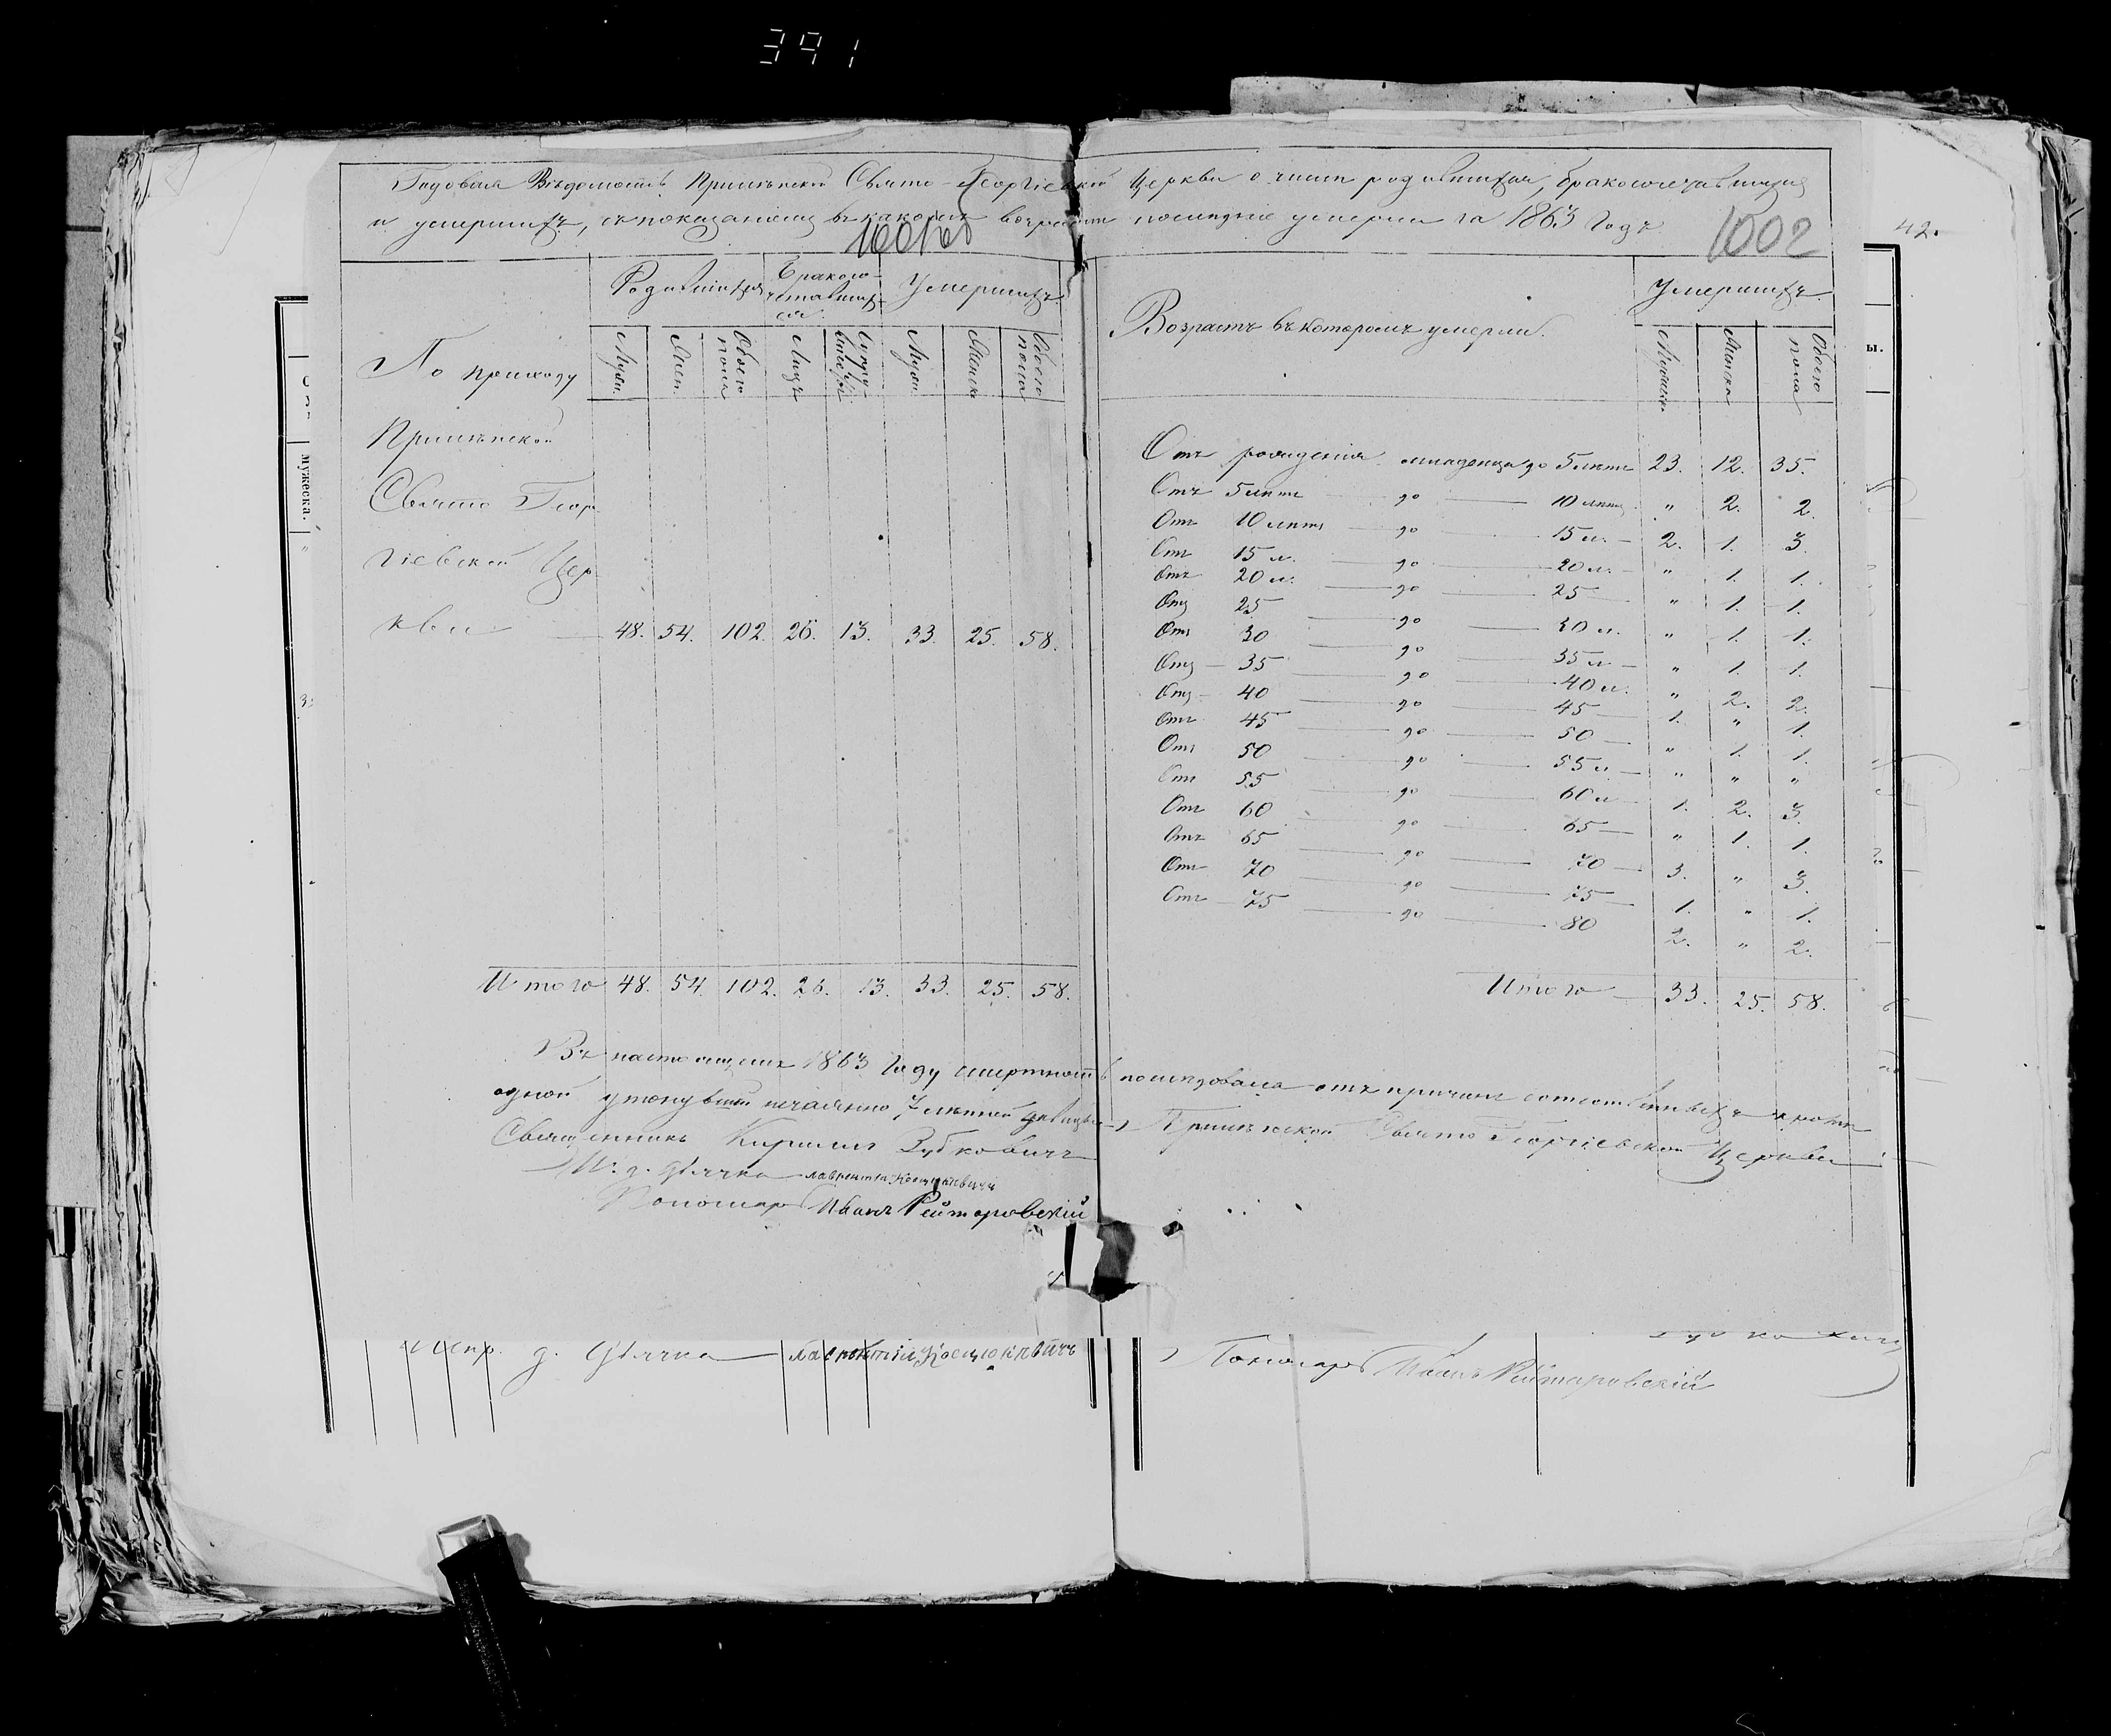 391
Годовая Вѣдомость Свято-Георгіевской Церкви о числѣ родившихся, бракосочетавшихся
и умершихъ, съ показаніемъ въ какомъ возрастѣ послѣдніе умерли за 1863 годъ
1002
42.
По приходу
Родившихся
Бракосо-
четавших-
ся.
Умершихъ.
Муж.
Жен.
Обоего пола
Лицъ
Муж.
Женска
Обоего пола
Возрастъ въ которомъ умерли.
Умершихъ.
Мужска
Женска
Обоего пола
ы.
мужеска.
Свято Геор-
гіевской Цер-
кви 48. 54. 102. 26. 13. 33. 25. 58.
Итого 48. 54. 102. 26. 13. 33. 25. 58.
Отъ рожденія младенца до 5 лѣтъ 23. 12. 35.
Отъ 5 лѣтъ до 10 лѣтъ " 2. 2.
Отъ 10 лѣтъ до 15 л. 2. 1. 3.
Отъ 15 л. до 20 л. " 1. 1.
Отъ 20 л. до 25 " 1. 1.
Отъ 25 до 30 л. " 1. 1.
Отъ 30 до 35 л. " 1. 1.
Отъ 35 до 40 л. " 2. 2.
Отъ 40 до 45 1. " 1.
Отъ 45 до 50 " 1. 1.
Отъ 50 до 55 л. " " "
Отъ 55 до 60 л. 1. 2. 3.
Отъ 60 до 65 " 1. 1.
Отъ 65 до 70 3. " 3.
Отъ 70 до 75 1. " 1.
Отъ 75 до 80 2. " 2.
Итого 33. 25. 58.
Въ настоящемъ 1863 году смертность послѣдовала отъ причинъ естественныхъ кромѣ
одной утонувшей нечаянно 7 лѣтней дѣвицы
Свято Георгіевской Церкви
Священникъ Кириллъ Зубковичъ
И. д. дьячка Лаврентій
Пономарь Иванъ Рейтаровскій
Испр. д. дьячка Лаврентій
Пономарь Иванъ Рейтаровскій